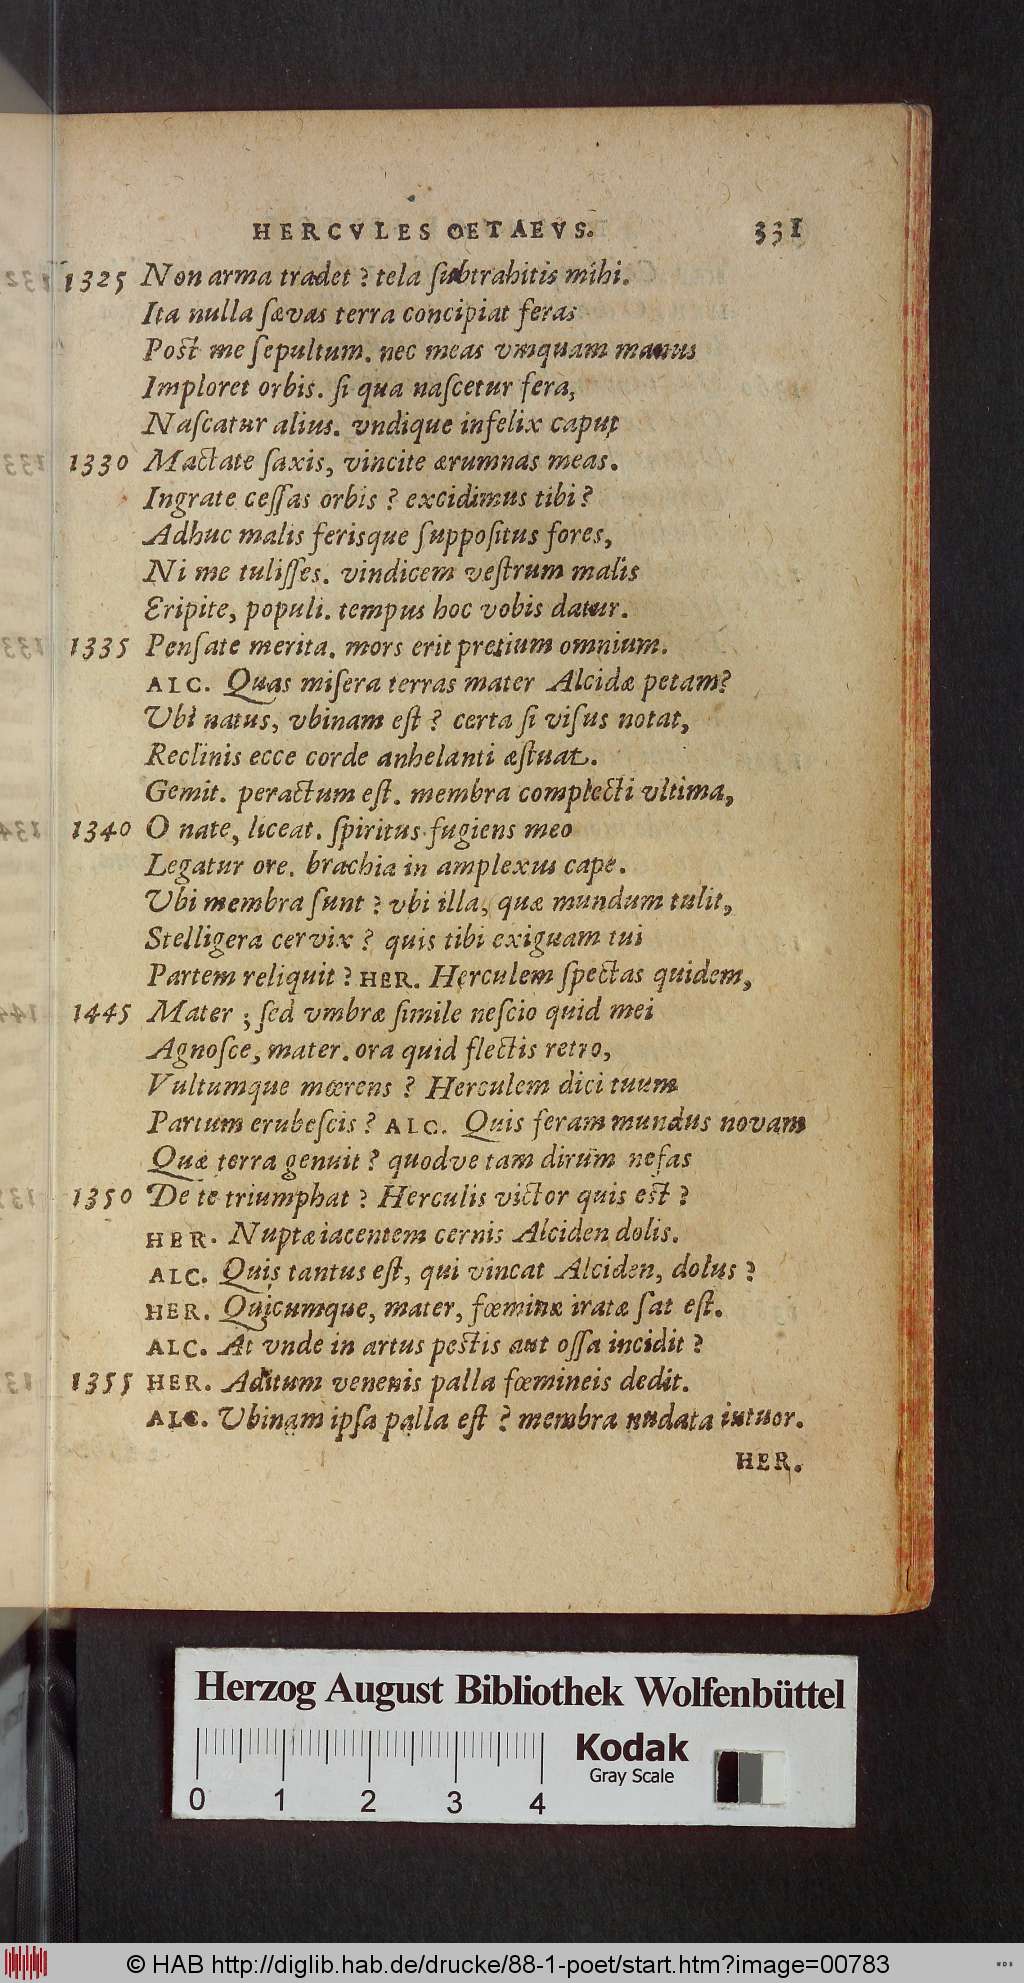 HERCVLES OETAEVS. 331
1325 Non arma tradet ? tela ſubtrahitis mihi.
Ita nulla ſævas terra concipiat feras
Post me ſepultum. nec meas vmquam manus
Imploret orbis. ſi qua naſcetur fera,
Naſcatur alius. vndique infelix caput
1330 Mactate ſaxis, vincite ærumnas meas.
Ingrate ceſſas orbis ? excidimus tibi ?
Adhuc malis feriſque ſuppoſitus fores,
Ni me tuliſſes. vindicem veſtrum malis
Eripite, populi. tempus hoc vobis datur.
1335 Penſate merita. mors erit pretium omnium.
ALC. Quas miſera terras mater Alcidæ petam?
Vbi natus, vbinam eſt ? certa ſi viſus notat,
Reclinis ecce corde anhelanti æſtuat.
Gemit. peractum eſt. membra complecti vltima,
1340 O nate, liceat. ſpiritus fugiens meo
Legatur ore. brachia in amplexus cape.
Vbi membra ſunt ? vbi illa, quæ mundum tulit,
Stelligera cervix ? quis tibi exiguam tui
Partem reliquit ? HER. Herculem ſpectas quidem,
1445 Mater ; ſed vmbræ ſimile neſcio quid mei
Agnoſce, mater. ora quid flectis retro,
Vultumque mœrens ? Herculem dici tuum
Partum erubeſcis ? ALC. Quis feram mundus novam
Quæ terra genuit ? quodve tam dirum nefas
1350 De te triumphat ? Herculis victor quis est ?
HER. Nuptæ iacentem cernis Alciden dolis.
ALC. Quis tantus eſt, qui vincat Alciden, dolus ?
HER. Quicumque, mater, fœminæ iratæ ſat eſt.
ALC. At vnde in artus pestis aut oſſa incidit ?
1355 HER. Aditum venenis palla fœmineis dedit.
ALC. Vbinam ipſa palla eſt ? membra nudata intuor.
HER.
Herzog August Bibliothek Wolfenbüttel
Kodak
Gray Scale
0 1 2 3 4
© HAB http://diglib.hab.de/drucke/88-1-poet/start.htm?image=00783